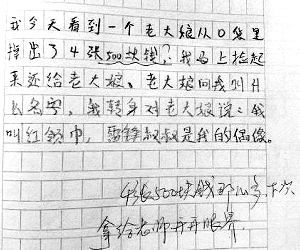 我今天看到一个老大娘从口袋里
掉出了4张500块钱？我马上捡起
来还给老大娘、老大娘问我叫什
么名字，我转身对老大娘说：我
叫红领巾，雷锋叔叔是我的偶像。
4张500块钱那么多下次
拿给老师开开眼界